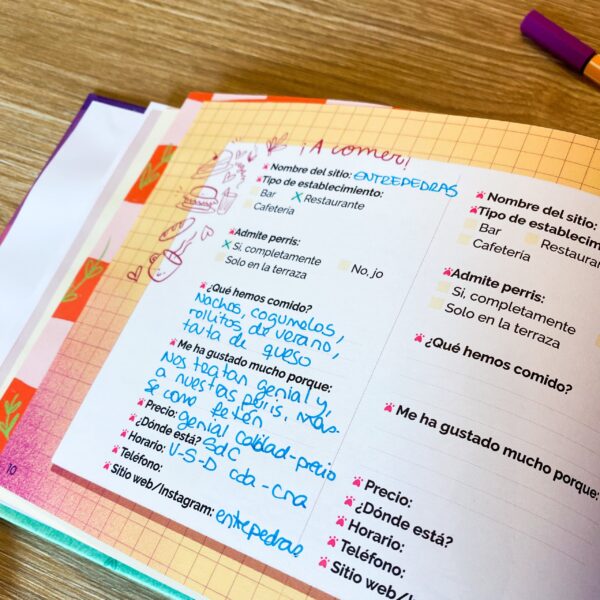 ¡A comer!
Nombre del sitio: ENTREPEDRAS
Tipo de establecimiento:
Bar X Restaurante
Cafetería
Admite perris:
X Sí, completamente
Solo en la terraza No, jo
¿Qué hemos comido?
Nachos, cogumelos,
rollitos de verano,
tarta de queso
Me ha gustado mucho porque:
Nos tratan genial y,
a nuestras peris, más.
Se come fetén
Precio: genial calidad-precio
¿Dónde está? SdC
Horario: V-S-D cda-cna
Teléfono:
Sitio web/Instagram: entrepedras
10
Nombre del sitio:
Tipo de establecim
Bar Restauran
Cafetería
Admite perris:
Sí, completamente
Solo en la terraza
¿Qué hemos comido?
Me ha gustado mucho porque:
Precio:
¿Dónde está?
Horario:
Teléfono:
Sitio web/